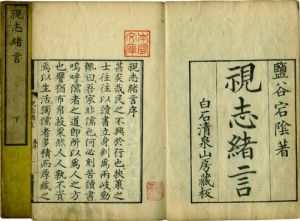 鹽谷宕陰著
視志緒言
白石清泉山房藏板
視志緒言序
甚矣哉民之不興於行也挾策之
士往往以讀書立身判為兩岐動
輙曰吾家非儒也何必刻苦讀書
嗚呼儒者之道即所以為人之方
也譬猶布帛菽粟然人人孰不資
焉以生活獨儒者多積而厚藏之
視志緒言 下